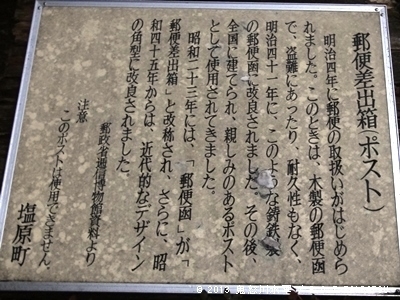 郵便差出箱（ポスト）
明治四年に郵便の取扱いがはじめら
れました。このときは、木製の郵便函
で、盗難にあったり、耐久性もなく、
明治四十一年に、このような鋳鉄製
の郵便函に改良されました。その後、
全国に建てられ、親しみのあるポスト
として使用されてきました。
昭和二十三年には、「郵便函」が「
郵便差出箱」と改称され、さらに、昭
和四十五年からは、近代的なデザイン
の角型に改良されました。
郵政省逓信博物館資料より
注意
このポストは使用できません。
塩原町
© 2013